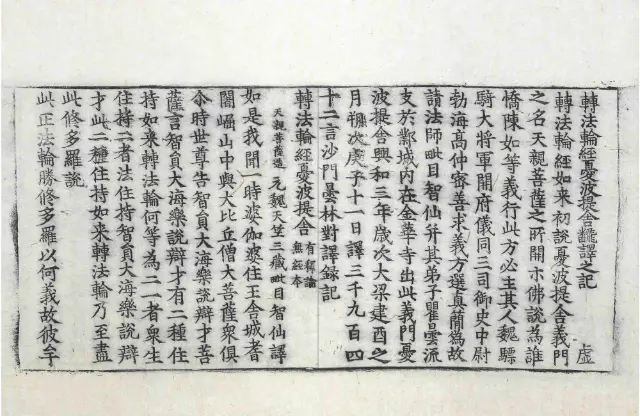 轉法輪經憂波提舍飜譯之記 虛
轉法輪經如來初說憂波提舍義門
之名天親菩薩之所開示佛說為誰
憍陳如等義行此方必主其人魏驃
騎大將軍開府儀同三司御史中尉
勃海高仲密善求義方選真簡為故
請法師毗目智仙并其弟子瞿曇流
支於鄴城內在金華寺出此義門憂
波提舍興和三年歲次大梁建酉之
月朔次庚子十一日譯三千九百四
十二言沙門曇林對譯錄記
轉法輪經憂波提舍 有釋論無經本
天親菩薩造 元魏天竺三藏毗目智仙譯
如是我聞一時婆伽婆住王舍城耆
闍崛山中與大比丘僧大菩薩衆俱
尒時世尊告智員大海樂說辯才菩
薩言智員大海樂說辯才有二種住
持如來轉法輪何等為二一者衆生
住持二者法住持智員大海樂說辯
才此二種住持如來轉法輪乃至盡
此修多羅說
此正法輪勝修多羅以何義故彼牟